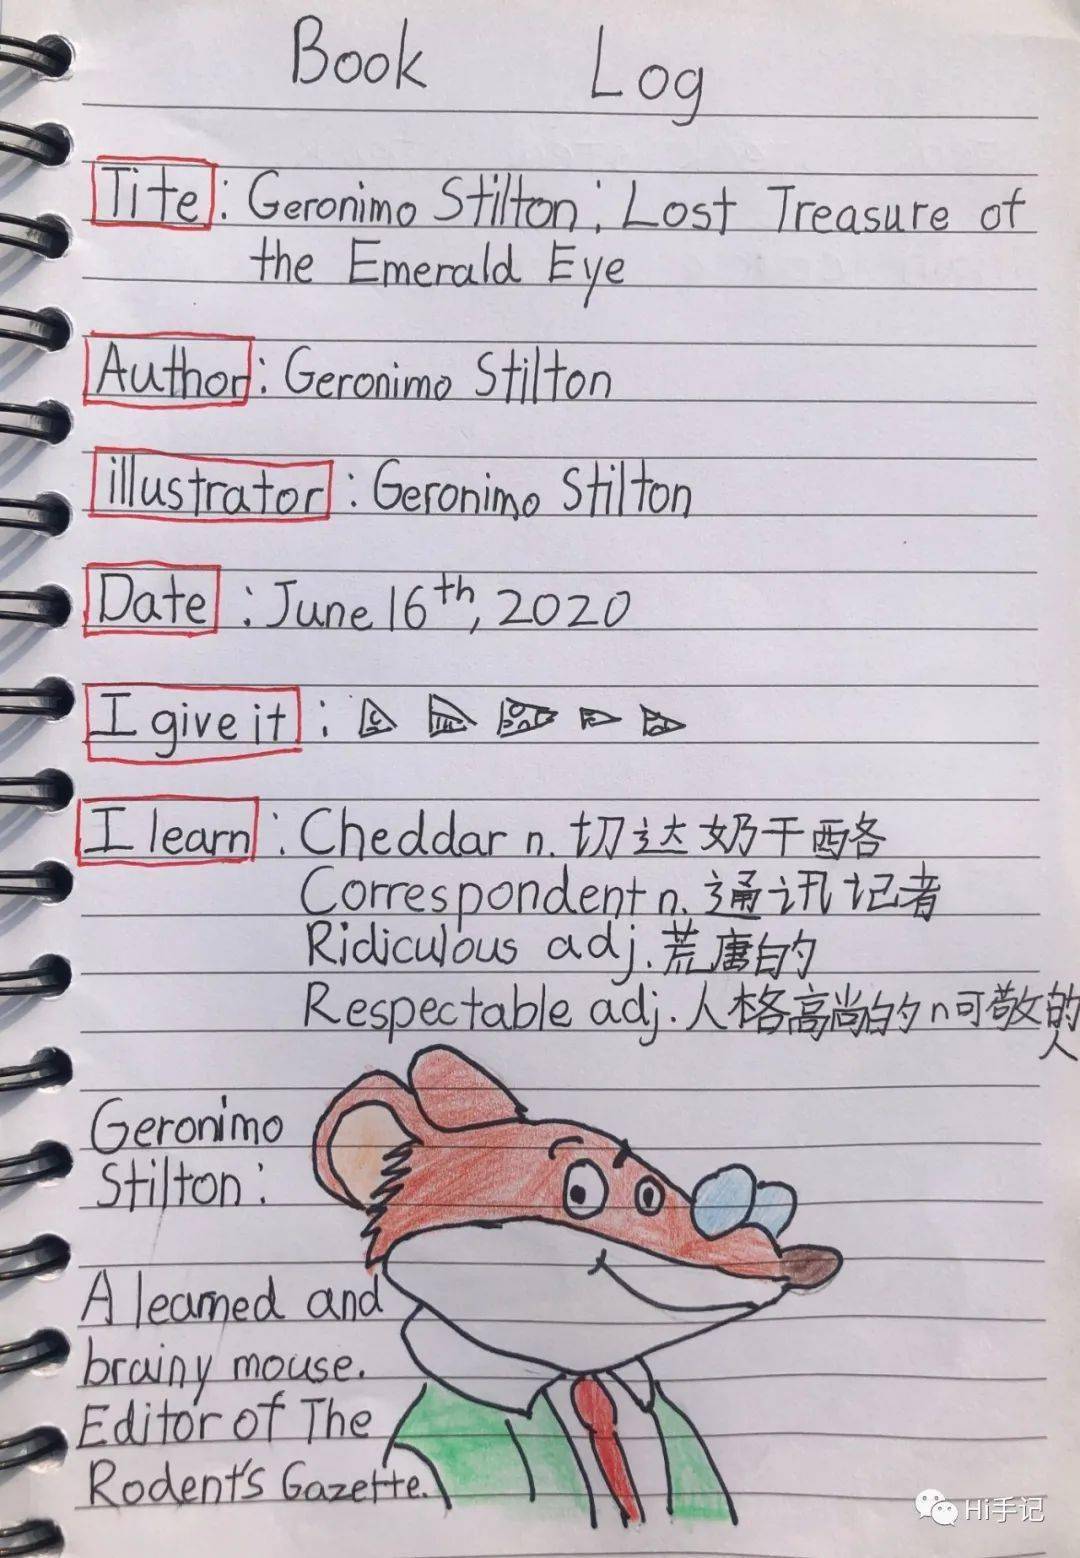 Book Log
Tite: Geronimo Stilton: Lost Treasure of
the Emerald Eye
Author: Geronimo Stilton
illustrator: Geronimo Stilton
Date: June 16th, 2020
I give it:
I learn: Cheddar n. 切达奶干酪各
Correspondent n. 通讯记者
Ridiculous adj. 荒唐的
Respectable adj. 人格高尚的 n可敬的
人
Geronimo
Stilton:
A learned and
brainy mouse.
Editor of The
Rodent's Gazette.
Hi手记